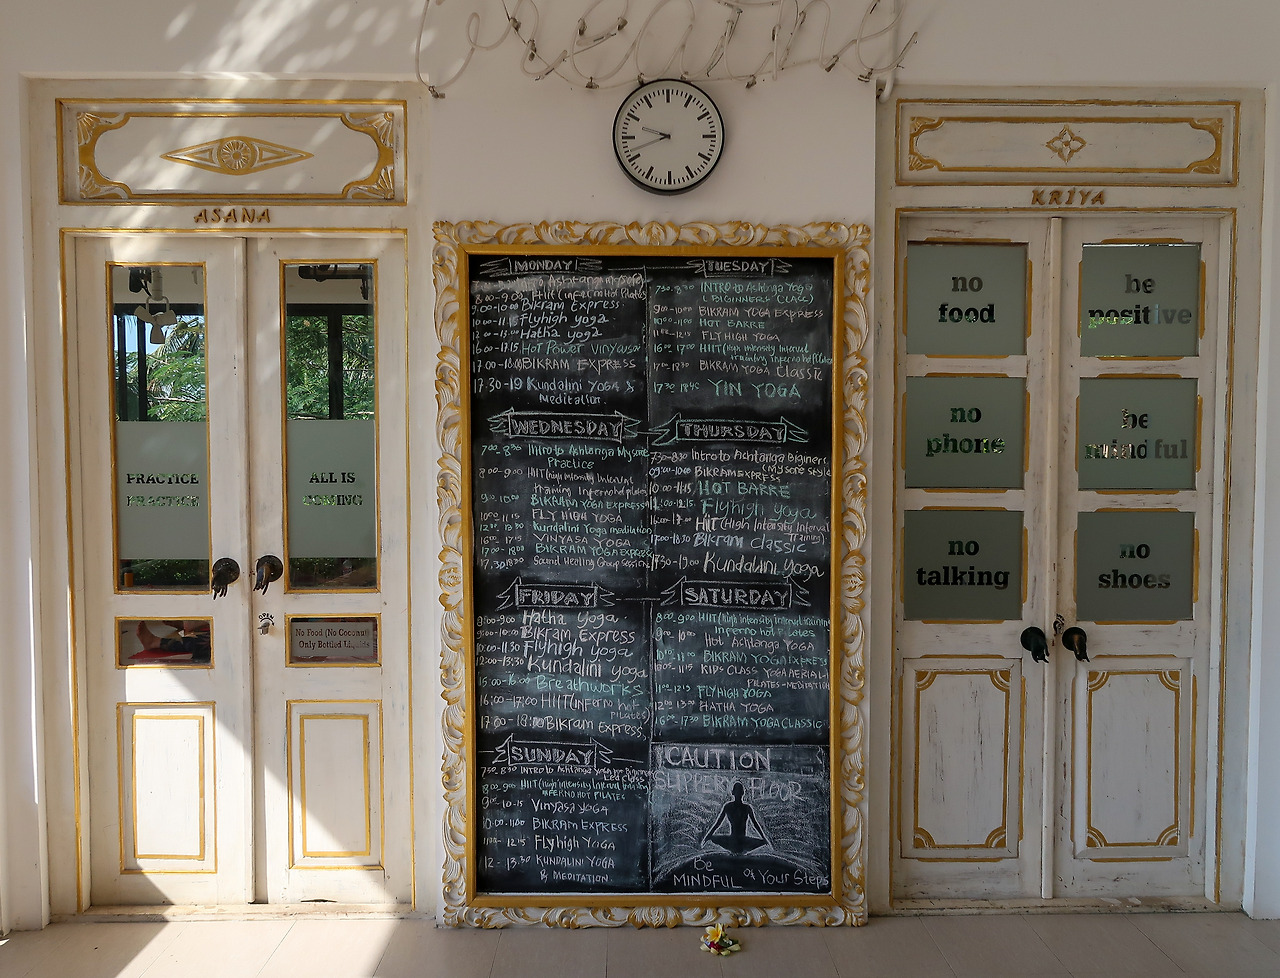 breathe
ASANA
PRACTICE
PRACTICE
ALL IS
COMING
OPEN
No Food (No Coconut)
Only Bottled Liquids
MONDAY
Intro to Ashtanga mysore
8.00-9.00 Hiit (inferno Hot Pilates
9.00-10.00 Bikram Express
10.00-11.15 Flyhigh yoga
12.00-13.00 Hatha yoga
16.00-17.15 Hot Power Vinyasa
17.00-18.00 BIKRAM EXPRESS
17.30-19 Kundalini YOGA &
Meditation.
TUESDAY
7.30-8.30 INTRO to Ashtanga Yoga
(BIGINNERS CLASS)
9.00-10.00 BIKRAM YOGA EXPRESS
10.00-11.00 HOT BARRE
FLY HIGH YOGA
16.00 17.00 HIIT (high intensity Interval
training inferno hot pilates
BIKRAM YOGA Classic
17.30 YIN YOGA
WEDNESDAY
7.00-8.30 Intro to Ashtanga Mysore
Practice
8.00-9.00 HIIT (high intensity Interval
training inferno hot pilates
9.00-10.00 BIKRAM YOGA EXPRESS
10.00-11.15 FLY HIGH YOGA
12.00-13.30 Kundalini Yoga meditation
16.00-17.15 VINYASA YOGA
17.00-18.00 BIKRAM YOGA EXPRESS
17.30 Sound Healing Group Session
THURSDAY
7.30-8.30 Intro to Ashtanga Biginers
(Mysore style
09.00-10.00 BIKRAM EXPRESS
10.00-11.15 HOT BARRE
Flyhigh yoga
HIIT (High Intensity Interval
Training)
17.00-18.30 Bikram classic
17.30-19.00 Kundalini yoga
FRIDAY
8:00-9:00 Hatha yoga
9:00-10:00 Bikram Express
10:00-11.30 Flyhigh yoga
12:00-13:30 Kundalini yoga
15:00-16:00 Breathworks
16:00-17:00 HIIT (inferno hot
pilates)
17:00-18:00 Bikram Express
SATURDAY
8.00-9.00 HIIT (high intensity interval training
inferno hot Pilates
9.00-10.00 Hot ASHTANGA YOGA
BIKRAM YOGA EXPRESS
KIDS CLASS YOGA AERIAL
PILATES-MEDITATION
FLYHIGH YOGA
12.00 13.00 HATHA YOGA
16.00-17.30 BIKRAM YOGA CLASSIC
SUNDAY
7.30-8.30 INTRO to Ashtanga Yoga
Led class
8.00-9.00 HIIT (high intensity Interval training
INFERNO HOT PILATES
9.00-10.15 Vinyasa YOGA
10.00-11.00 BIKRAM EXPRESS
Flyhigh yoga
12-13.30 KUNDALINI YOGA
& MEDITATION.
CAUTION
SLIPPERY FLOOR
Be
MINDFUL of Your Steps
KRIYA
no
food
be
positive
no
phone
be
mindful
no
talking
no
shoes